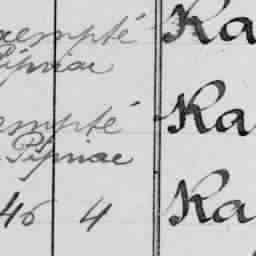 exempté Ka
Pipriac
exempté Ka
Pipriac
46 4 Ka